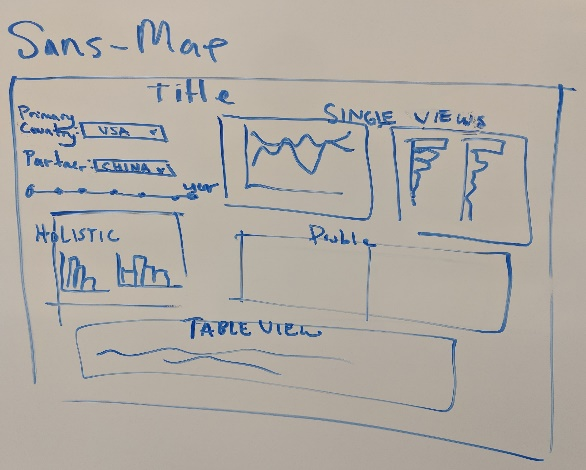 Sans-Map
Title
Primary
Country: USA
Partner: CHINA
year
SINGLE VIEWS
HOLISTIC
Double
TABLE VIEW